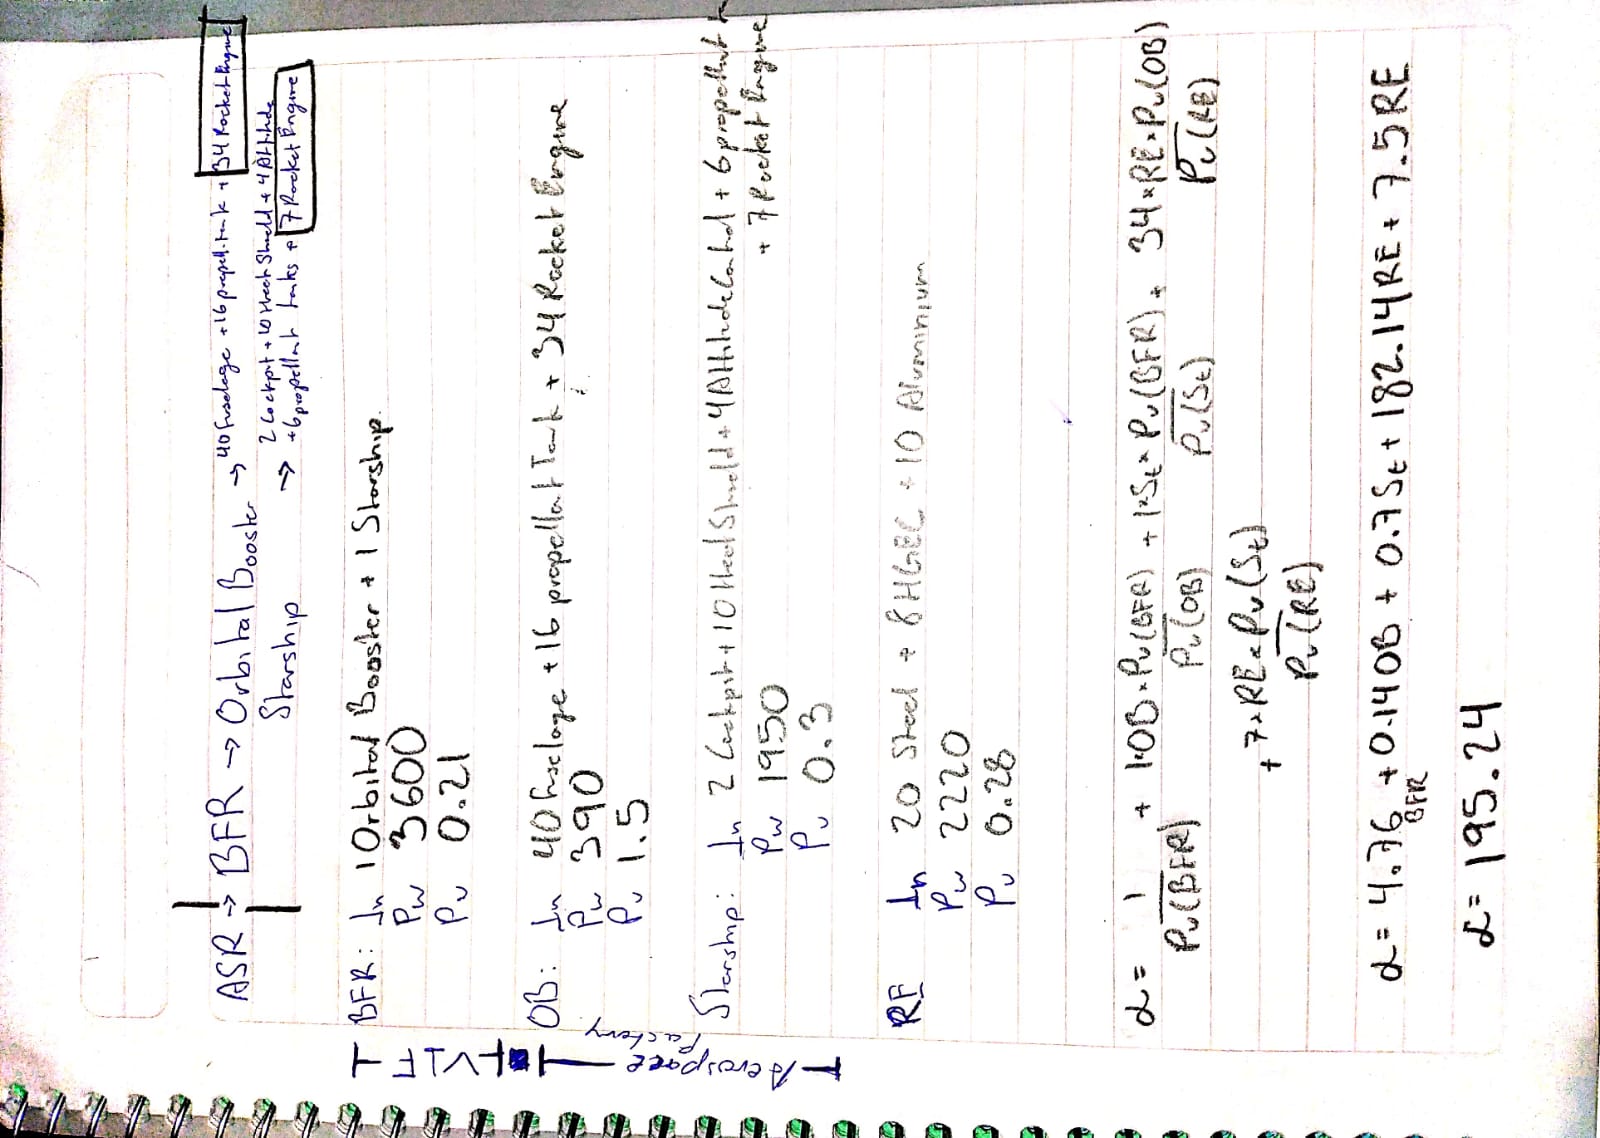 ASR → BFR → Orbital Booster → 40 fuselage + 16 propell.tank + 34 Rocket Engine
Starship → 2 Cockpit + 10 Heat Shield + 4 Attitude
+ 6 propellant tanks + 7 Rocket Engine
BFR: In 1 Orbital Booster + 1 Starship.
Pw 3600
Pv 0.21
OB: In 40 fuselage + 16 propellant Tank + 34 Rocket Engine
Pw 390
Pv 1.5
Starship: In 2 Cockpit + 10 Heat Shield + 4 Attitude Control + 6 propellant
+ 7 Rocket Engine
Pw 1950
Pv 0.3
RE In 20 Steel + 8 HGEC + 10 Aluminium
Pw 2220
Pv 0.28
VIF
Aerospace
factory
α = 1/Pv(BFR) + 1·OB×Pv(BFR)/Pv(OB) + 1×St×Pv(BFR)/Pv(St) + 34×RE×Pv(OB)/Pv(RE)
+ 7×RE×Pv(St)/Pv(RE)
α = 4.76 BFR + 0.14OB + 0.7St + 182.14RE + 7.5RE
α = 195.24